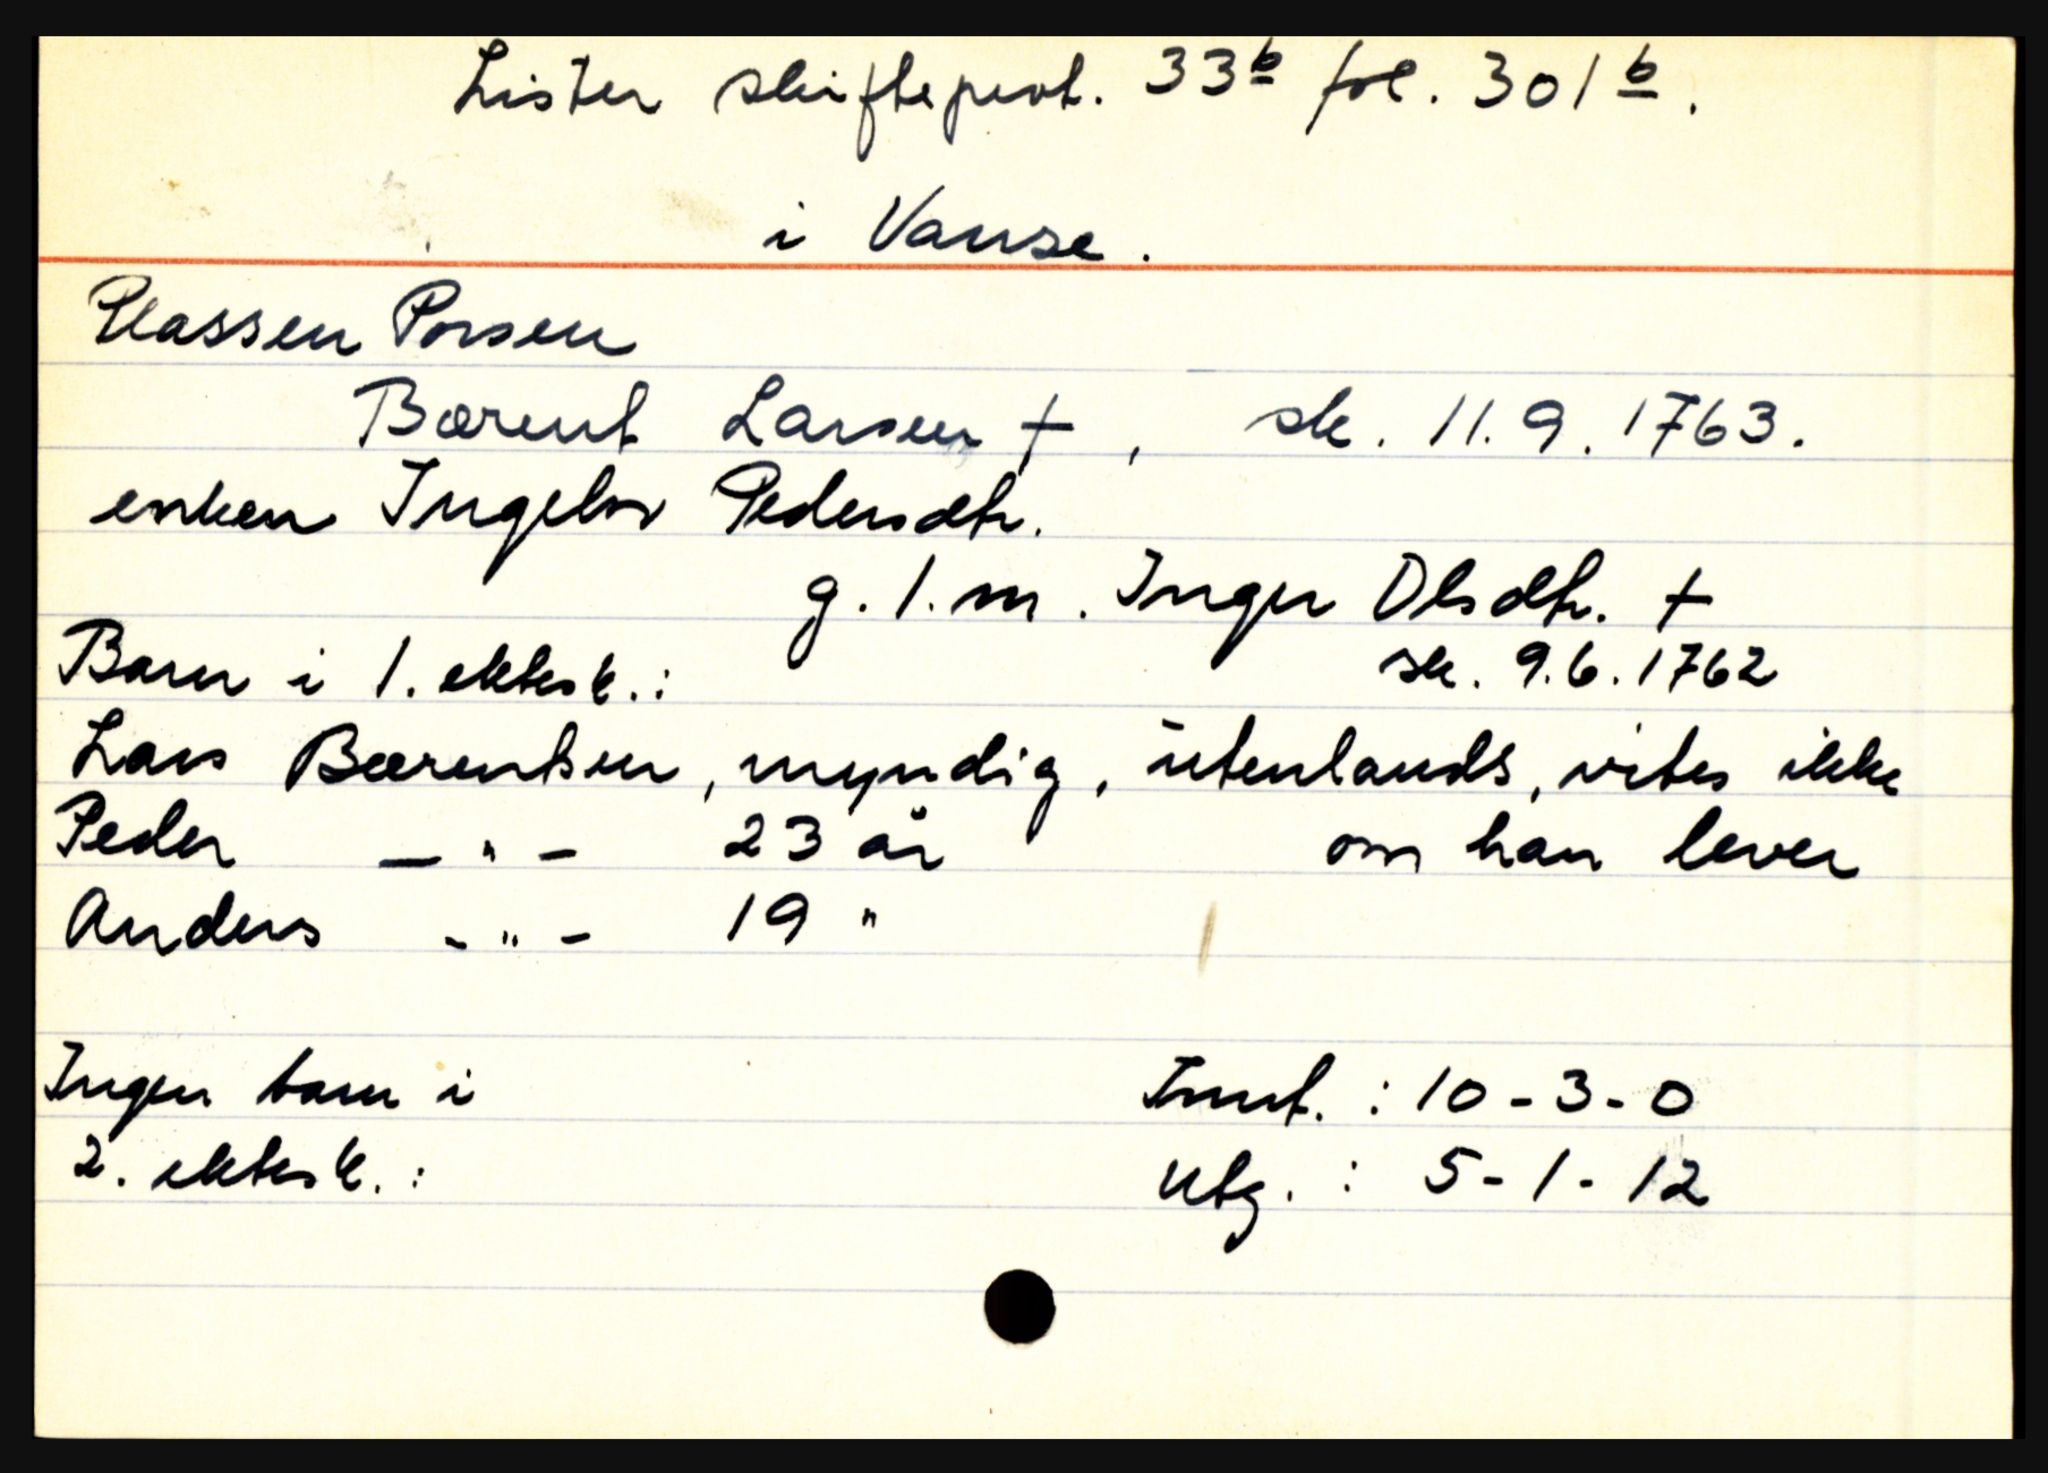 Lister skifteprot. 33b fol. 301b.
i Vanse.
Plassen Porsen
Bærent Larsen †, sk. 11.9.1763.
enken Ingebor Pedersdtr.
g. 1. m. Inger Olsdtr. †
sk. 9.6.1762
Barn i 1. ektesk.:
Lars Bærentsen, myndig, utenlands, vites ikke
om han lever
Peder — " — 23 år
Anders - " - 19 "
Ingen barn i
2. ektesk.:
Innt.: 10-3-0
Utg.: 5-1-12